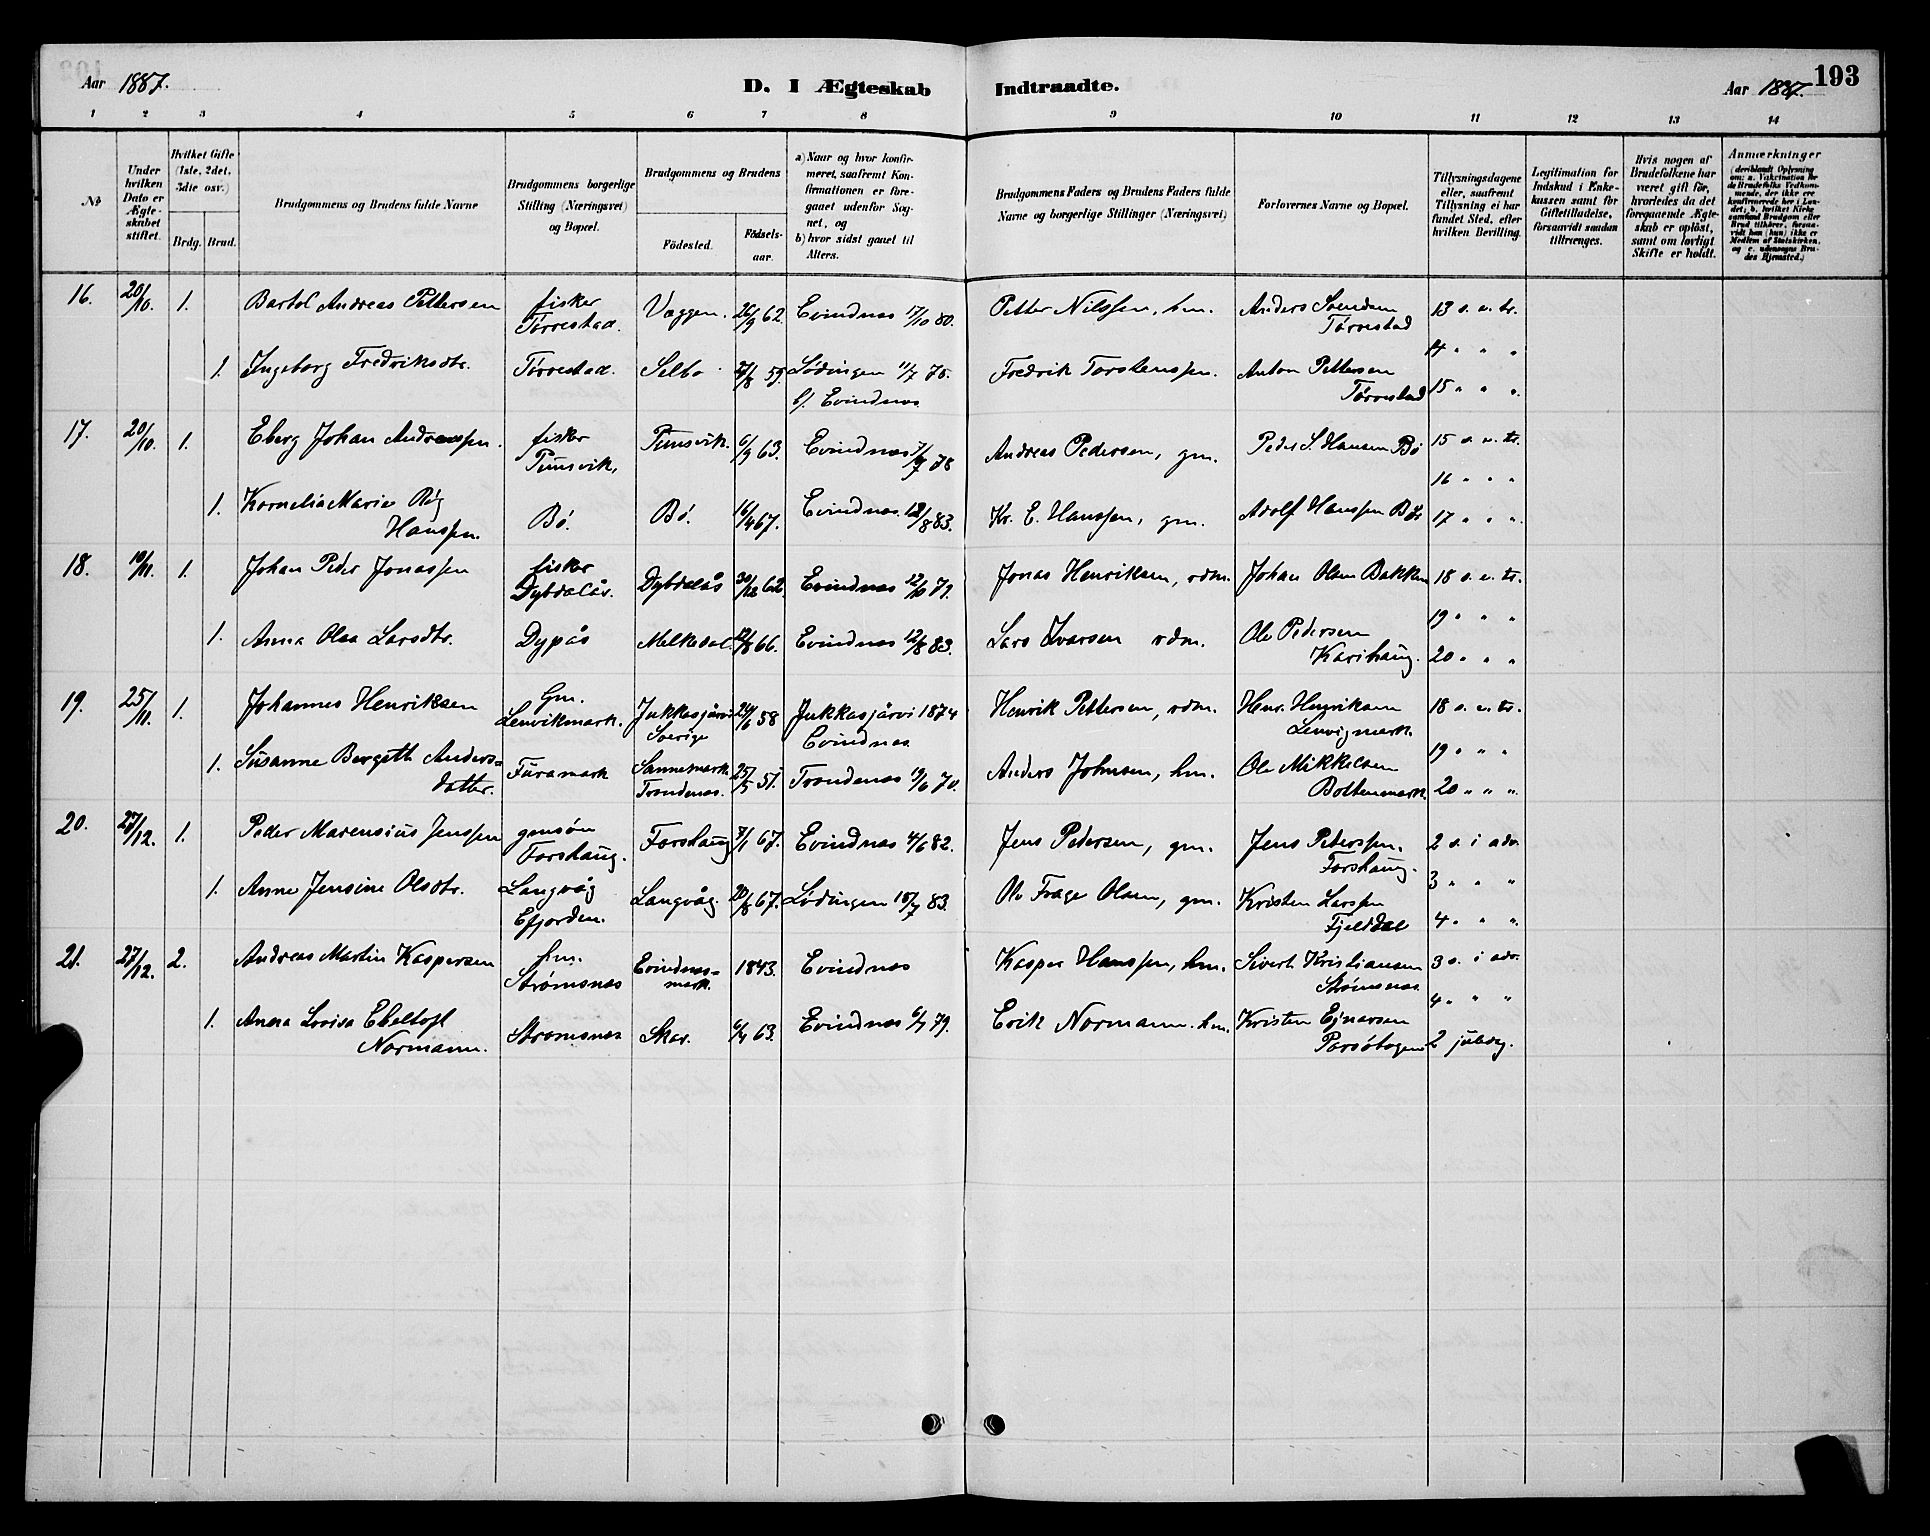 Aar 1887. D. I Ægteskab Indtraadte. Aar 1887. 193
1 2 3 4 5 6 7 8 9 10 11 12 13 14
No
Under hvilken Dato er Ægteskabet stiftet.
Hvilket Gifte (1ste, 2det, 3die osv.)
Brdg. Brud.
Brudgommens og Brudens fulde Navne
Brudgommens borgerlige Stilling (Næringsvei) og Bopæl.
Brudgommens og Brudens
Födested. Födselsaar.
a) Naar og hvor konfirmeret, saafremt Konfirmationen er foregaaet udenfor Sognet, og
b) hvor sidst gaaet til Alters.
Brudgommens Faders og Brudens Faders fulde Navne og borgerlige Stillinger (Næringsvei)
Forlovernes Navne og Bopæl.
Tillysningsdagene eller, saafremt Tillysning ei har fundet Sted, efter hvilken Bevilling.
Legitimation for Indskud i Enkekassen samt for Giftetilladelse, forsaavidt saadan tiltrænges.
Hvis nogen af Brudefolkene har været gift för, hvorledes da det foregaaende Ægteskab er oplöst, samt om lovligt Skifte er holdt.
Anmærkninger (deriblandt Oplysning om: a. Vakcination for de Brudefolks Vedkommende, der ikke ere konfirmerede her i Landet, b. hvilket Kirkesamfund Brudgom eller Brud tilhörer, forsaavidt han (hun) ikke er Medlem af Statskirken, og c. udensogns Brudes Hjemsted.)
16. 20/10. 1. Bartol Andreas Pettersen fisker Tørrestad. Væggen. 26/9 62. Evindnæs 17/10 80. Petter Nilssen, hm. Anders Svendsen Tørrestad 13 s. e. tr.
14 " " "
1. Ingeborg Fredriksdtr. Tørrestad. Selbo 59. Lødingen 11/7 75. b/ Evindnæs Fredrik Torstenssen. Anton Pettersen Tørrestad 15 " " "
17. 20/10. 1. Eberg Johan Andreassen. fisker Punsvik, Punsvik. 6/9 63. Evindnæs 7/9 78 Andreas Pedersen, gm. Peder S. Hansen Bø 15 s. e. tr.
16 " " "
1. Kornelia Marie Røg Hanssen. Bø. Bø. 16/4 67. Evindnæs 12/8 83. Kr. E. Hanssen, gm. Adolf Hanssen Bø 17 " " "
18. 10/11. 1. Johan Peder Jonassen fisker Dybdalås. Dybdalås 30/12 62. Evindnæs 12/10 79. Jonas Henriksen, rdm. Johan Olsen Bakken 18 s. e. tr.
19 " " "
1. Anna Olea Larsdtr. Dypås Melkedal. 12/8 66. Evindnæs 12/8 83. Lars Ivarsen rdm. Ole Pedersen Karihaug. 20 " " "
19. 25/11. 1. Johannes Henriksen Gm. Lenvikmark. Jukkasjärvi Sverige 24/6 58 Jukkasjärvi 1874 Evindnæs Henrik Pettersen, rdm. Henr. Henriksen Lenvigmark. 18 s. e. tr.
19 " " "
1. Susanne Bergitte Andersdatter. Furamark Sannesmark Trondenæs. 25/5 51. Trondenæs 19/6 70. Anders Johnsen, hm. Ole Mikkelsen Boltenmark. 20 " " "
20. 27/12. 1. Peder Marensius Jenssen gmsøn Forshaug. Forshaug 7/1 67. Evindnæs 4/6 82. Jens Petersen, gm. Jens Peterssen. Forshaug. 2 s. i adv.
3 " " "
1. Anne Jensine Olsdtr. Langvåg Efjorden. Langvåg. 20/8 67. Lødingen 15/7 83. Ole Frage Olsen, gm. Kristen Larssen Fjelddal 4 " " "
21. 27/12. 2. Andreas Martin Kaspersen hm. Strømsnæs Evindnæsmark. 1843. Evindnæs Kasper Hanssen, hm. Sivert Kristiansen Strømsnæs 3 s. i adv.
4 " " "
1. Anna Lovisa Ebeltoft Normann. Stromsnæs Skar. 6/4 63. Evindnæs 6/7 79. Erik Normann. hm. Kristen Ejnarsen Porsøbogen 2 juledag.